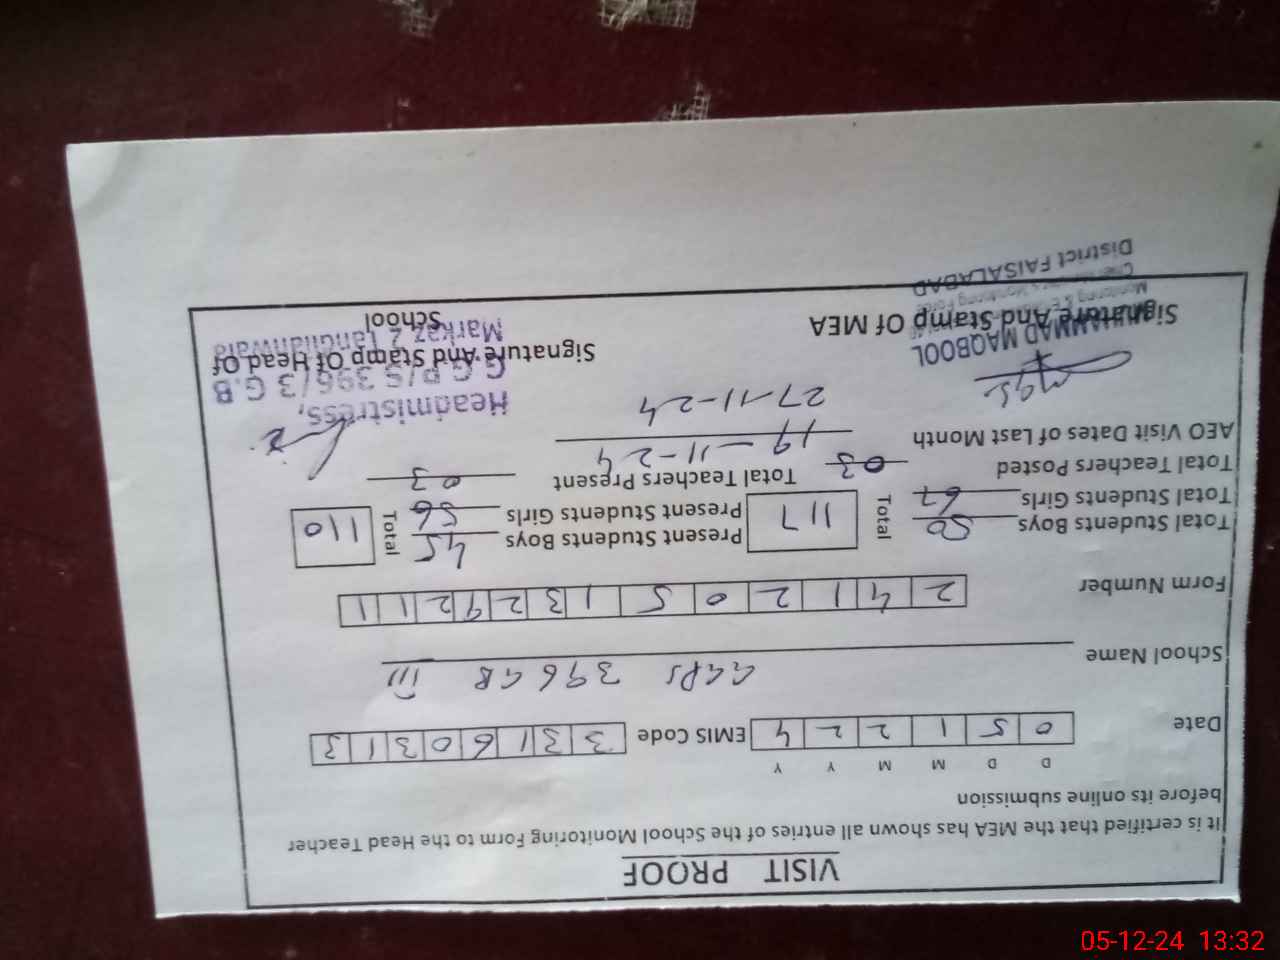 VISIT PROOF
It is certified that the MEA has shown all entries of the School Monitoring Form to the Head Teacher
before its online submission
D D M M Y Y
Date 0 5 1 2 2 4 EMIS Code 3 3 1 6 0 3 1 3
School Name GGPS 396 GB III
Form Number 2 4 1 2 0 5 1 3 2 9 2 1 1
Total Students Boys 50 Total 117 Present Students Boys 45 Total 110
Total Students Girls 67 Present Students Girls 56
Total Teachers Posted 03 Total Teachers Present 03
AEO Visit Dates of Last Month 19-11-24
27-11-24
Headmistress,
G.G.P/S 396/3 G.B
Markaz 2 Landianwala
MUHAMMAD MAQBOOL
Signature And Stamp Of MEA
Signature And Stamp Of Head Of
School
District FAISALABAD
05-12-24 13:32